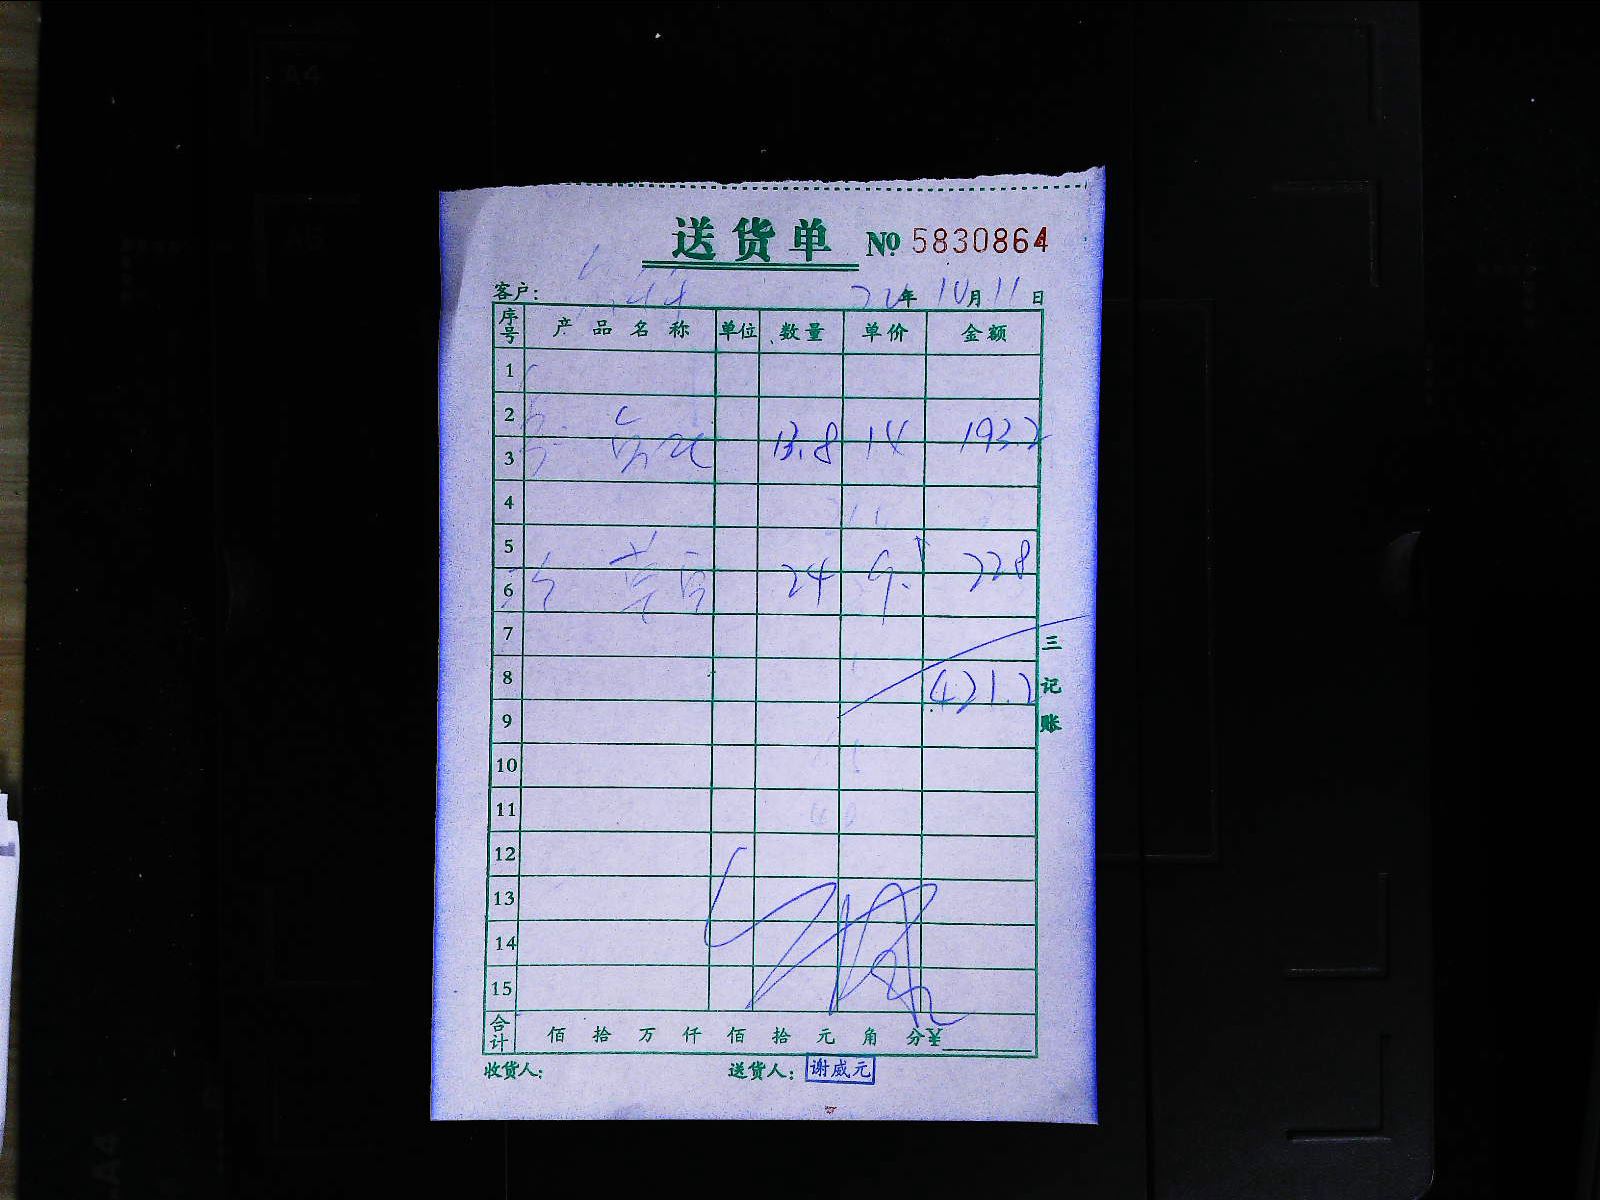 送货单 № 5830864
客户: 22年10月11日
序号 产品名称 单位 数量 单价 金额
1
2
13.8 14 193.2
3
4
5
24 9.5 228
6
7
8 421.2
9
10
11
12
13
14
15
合计 佰 拾 万 仟 佰 拾 元 角 分 ¥
收货人: 送货人: 谢威元
三记账
A4
A5
A4